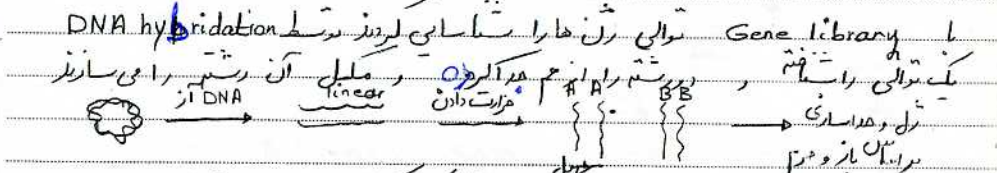 با Gene library توالی ژن ها را شناسایی کردند توسط DNA hybridation
یک توالی را شناخته و دو رشته را از هم جدا کرده و مکمل آن رشته را می سازند
DNA آز linear حرارت دادن A A B B ژل و جداسازی
بر اساس باز و جرم